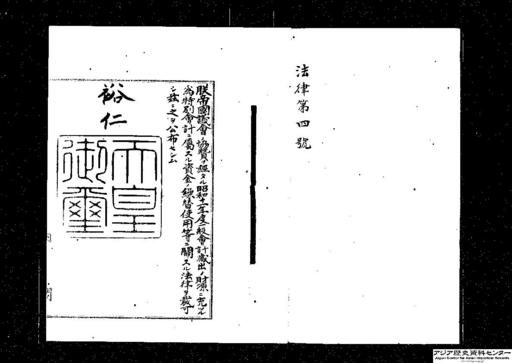 法律第四號
朕帝國議會ノ協贊ヲ經タル昭和十一年度一般會計歲出ノ財源ニ充ツル
爲特別會計ニ屬スル資金ノ繰替使用等ニ關スル法律ヲ裁可
シ茲ニ之ヲ公布セシム
裕仁
天皇御璽
アジア歴史資料センター
Japan Center for Asian Historical Records